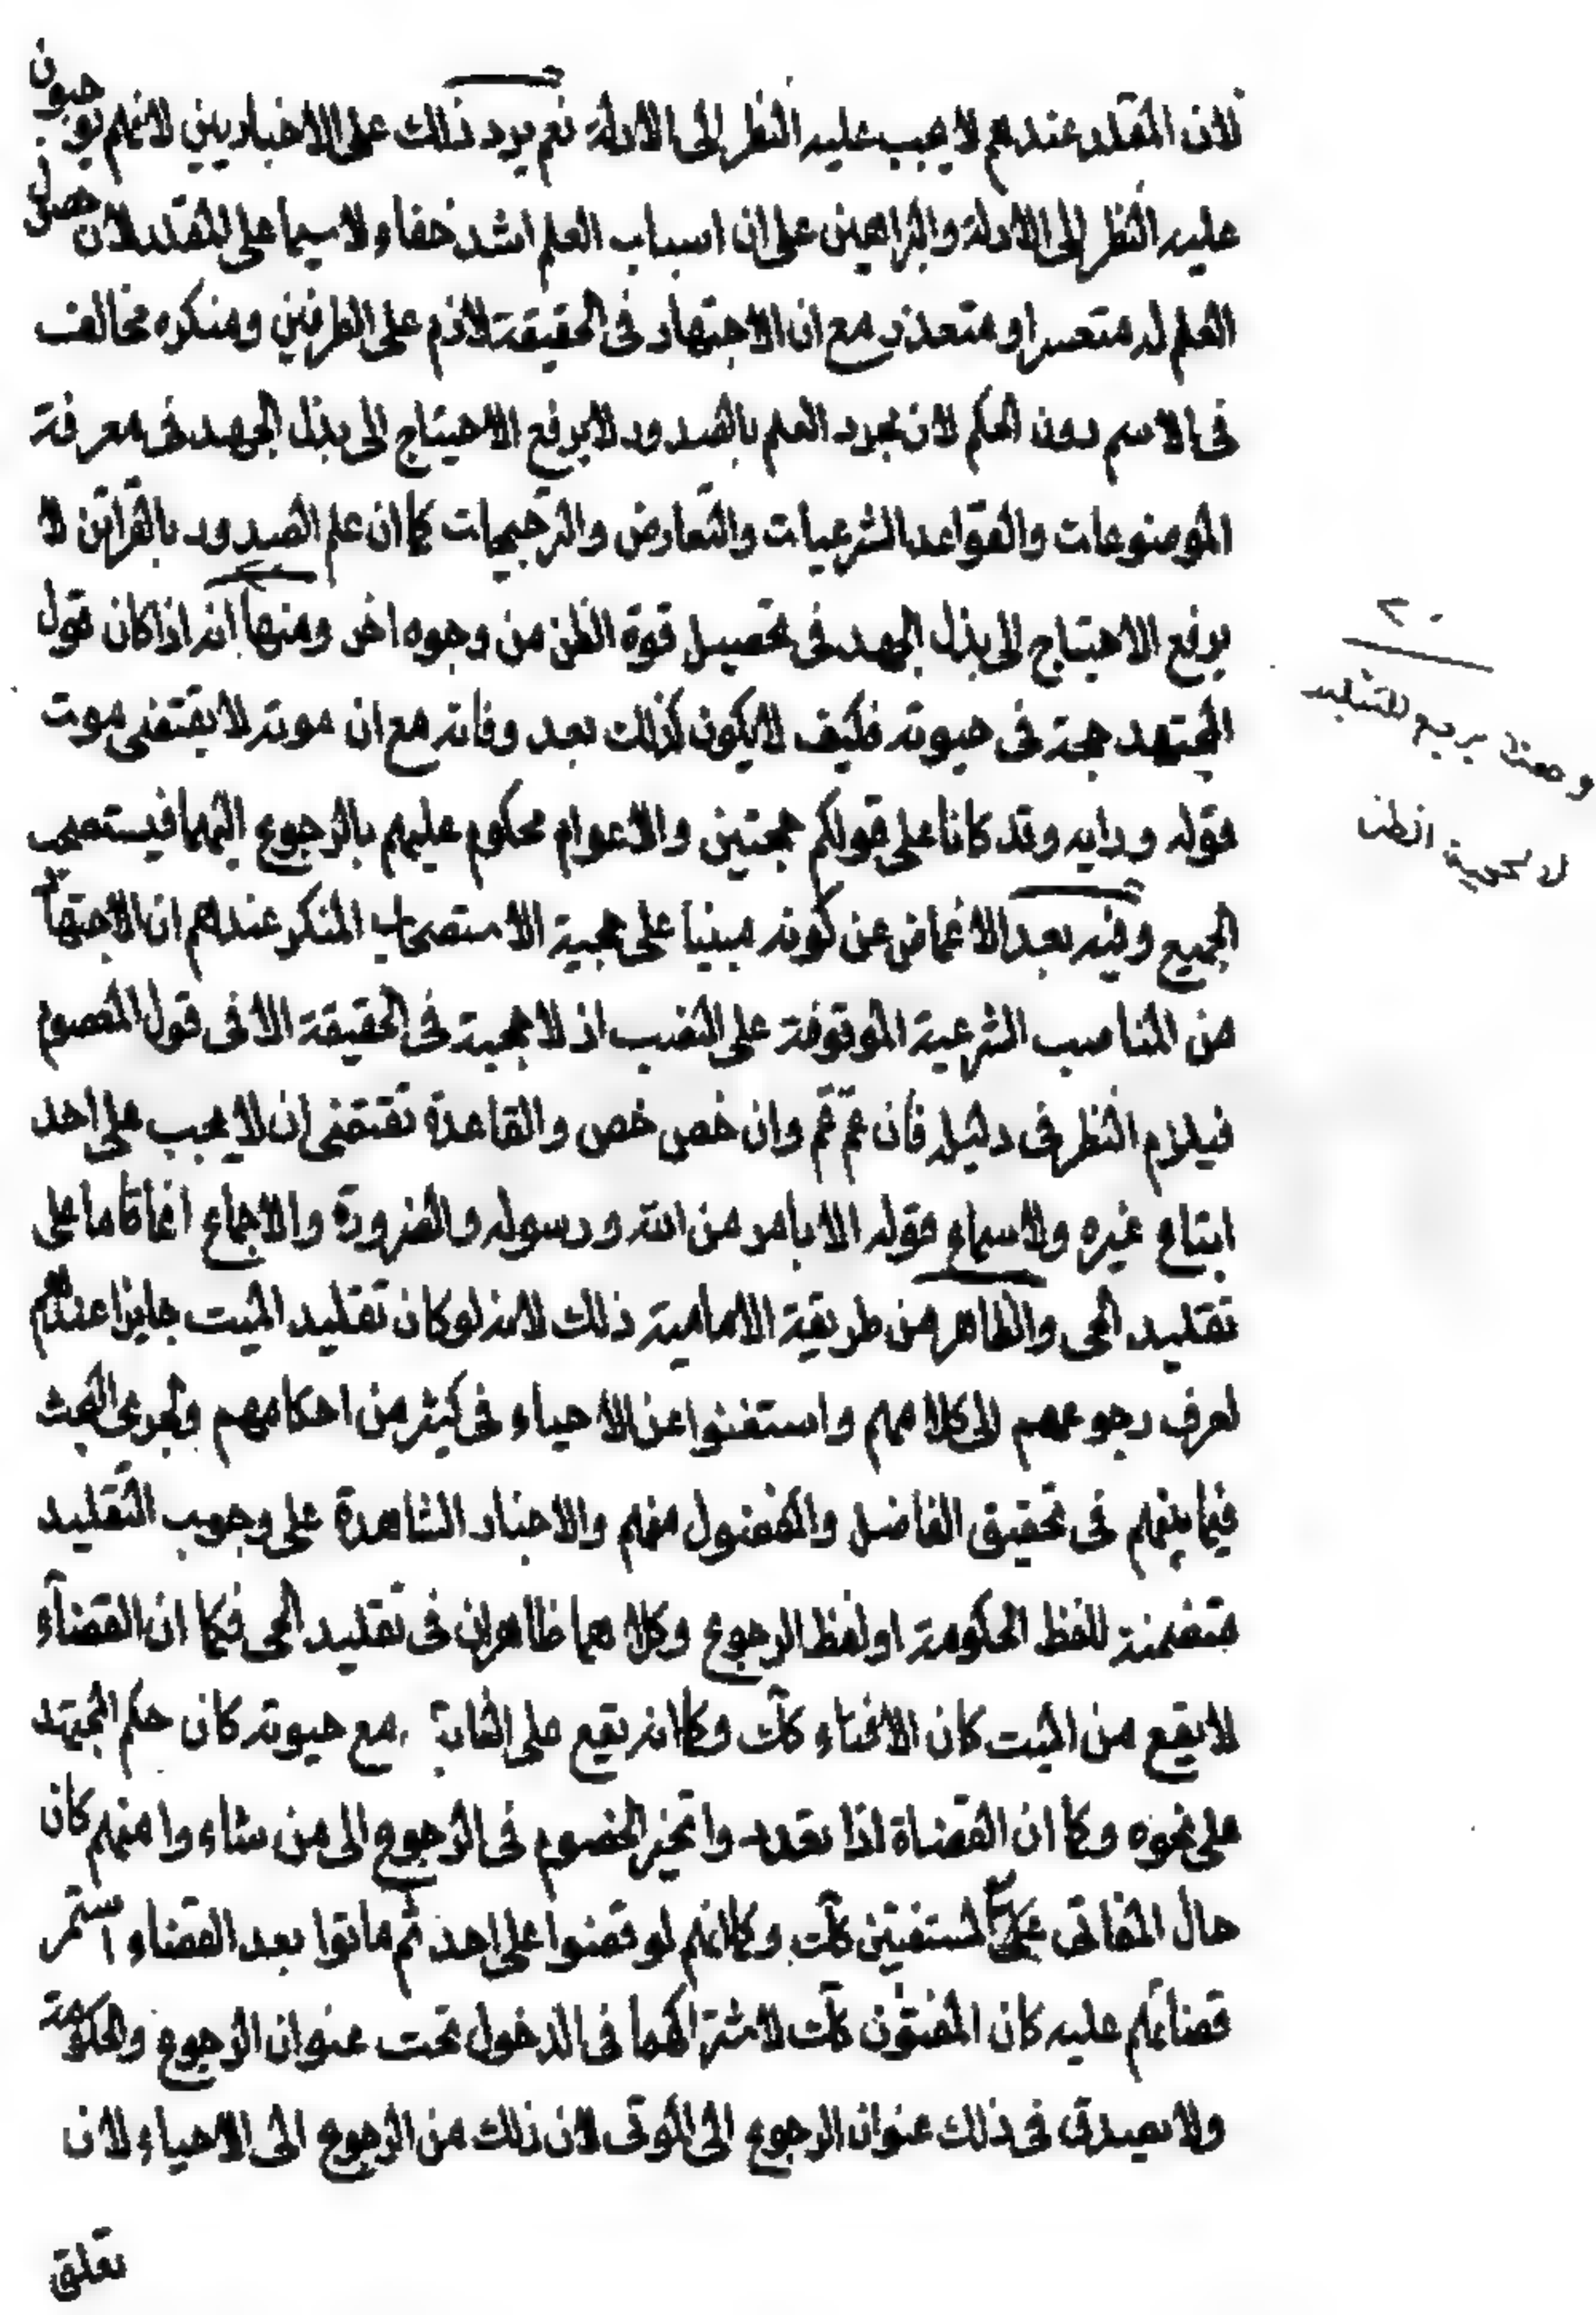 لان المقلد عندهم لا يجب عليه النظر الى الادلة نعم يرد ذلك على الاخباريين لانهم يوجبون
عليه النظر الى الادلة والبراهين على ان اسباب العلم اشد خفاء لا سيما على المقلد لان حصول
العلم له متعسر او متعذر مع ان الاجتهاد في الحقيقة لازم على الطرفين ومنكره مخالف
في الاسم دون الحكم لان مجرد العلم بالصدور لا يرفع الاحتياج الى بذل الجهد في معرفة
الموضوعات والقواعد الشرعيات والتعارض والترجيحات كما ان علم الصدور بالقرائن لا
يرفع الاحتياج الى بذل الجهد في تحصيل قوة الظن من وجوه اخر ومنها انه اذا كان قول
المجتهد حجة في حيوته فكيف لا يكون كذلك بعد وفاته مع ان موته لا يقتضى موت
قوله ورايه وقد كانا على قولكم حجتين والاعوام محكوم عليهم بالرجوع اليهما فيستصحب
الجميع وفيه بعد الاغماض عن كونه مبنيا على حجية الاستصحاب المنكر عندهم ان الاجتهاد
من المناصب الشرعية الموقوفة على النصب اذ لا حجية في الحقيقة الا في قول المعصوم
فيلزم النظر في دليله فان عم عم وان خص خص والقاعدة تقتضى ان لا يجب على احد
ابتاع غيره ولا سماع قوله الا بامر من الله ورسوله والضرورة والاجماع انما قاما على
تقليد الحى والظاهر من طريقة الامامية ذلك لانه لو كان تقليد الميت جايزا عندهم
لعرف رجوعهم الى كلامهم واستغنوا عن الاحياء في كثير من احكامهم ولجرى البحث
فيما بينهم في تحقيق الفاضل والمفضول منهم والاخبار الشاهدة على وجوب التقليد
متضمنة للفظ الحكومة او لفظ الرجوع وكلاهما ظاهران في تقليد الحى فكما ان القضآء
لا يقع من الميت كان الافتاء كك وكما انه يقع على مع حيوته كان حكم المجتهد
على نحوه وكما ان القضاة اذا تعددوا تخير الخصوم في الرجوع الى من شاءوا منهم كان
حال المفاتى مستفتين كك وكما انهم لو قضوا على احد ثم ماتوا بعد القضاء استمر
قضائهم عليه كان المفتون كك لاشتراكهما في الدخول تحت عنوان الرجوع والحكومة
ولا يصدق في ذلك عنوان الرجوع الى الموتى لان ذلك من الرجوع الى الاحياء لان
تعلق
٢٠
يرجع للتقليد
الظن